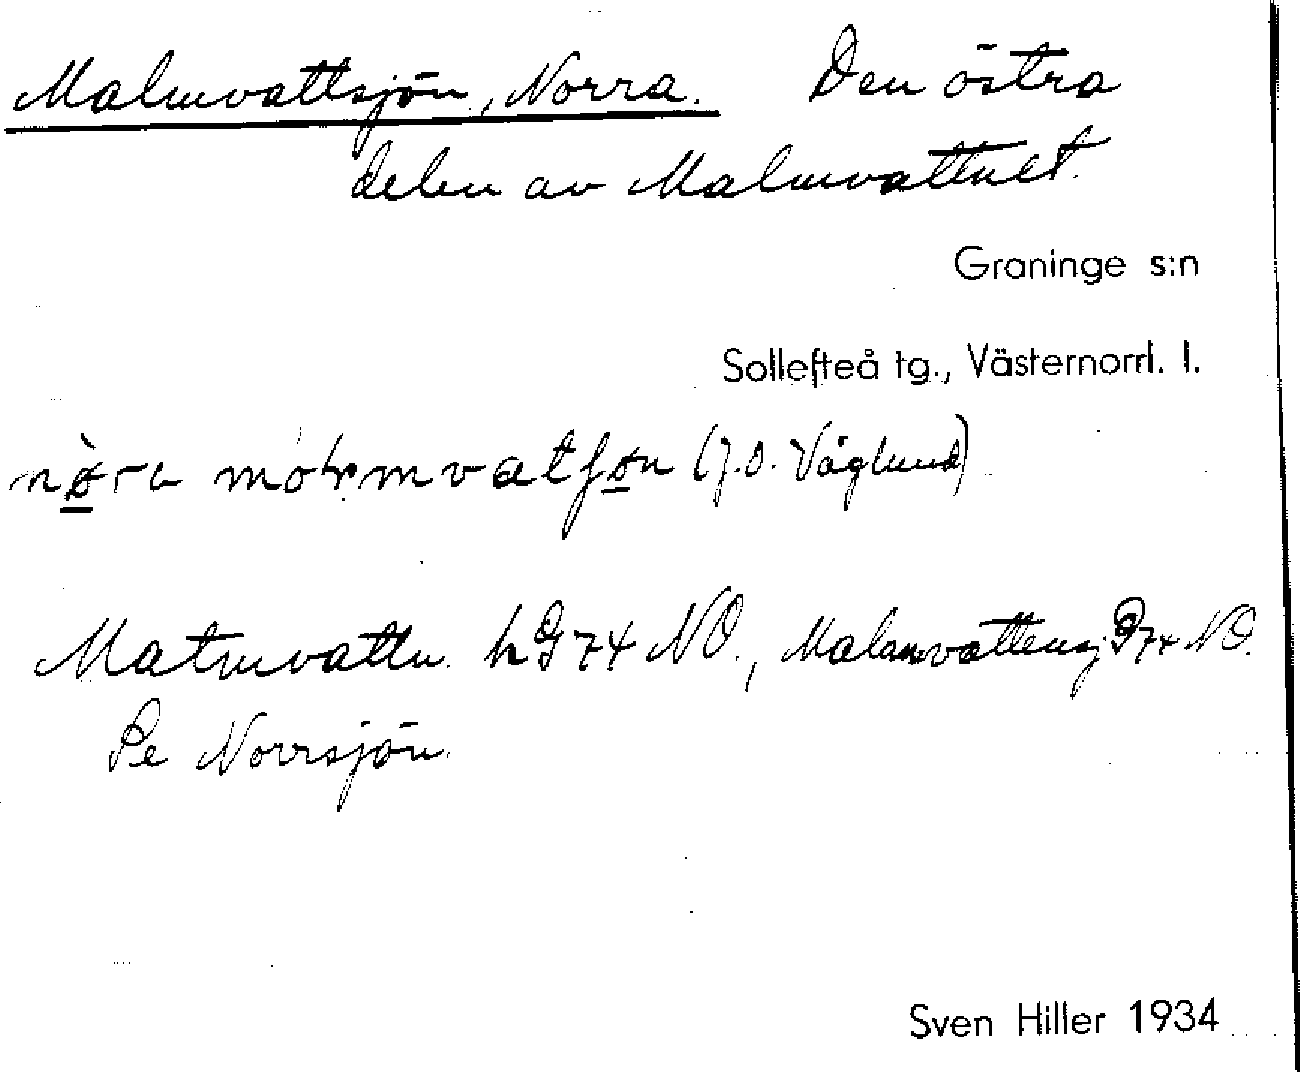 Malmvattsjön, Norra. Den östra
delen av Malmvattnet.
Graninge s:n
Sollefteå tg., Västernorrl. l.
(J.O. Våglund)
Malmvattn. h G 74 NO., Malmvatten G 74 NO.
Se Norrsjön.
Sven Hiller 1934